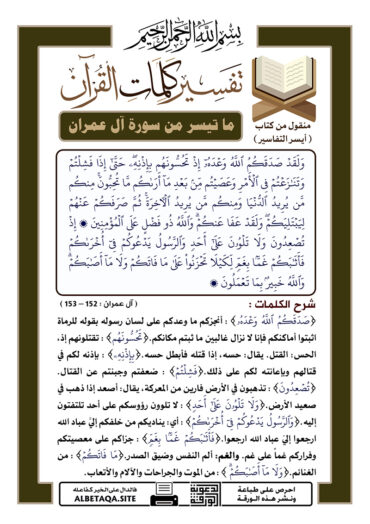 بِسْمِ اللَّهِ الرَّحْمَنِ الرَّحِيمِ
تفسير كلمات القرآن
منقول من كتاب
( أيسر التفاسير )
ما تيسر من سورة آل عمران
وَلَقَدْ صَدَقَكُمُ ٱللَّهُ وَعْدَهُۥٓ إِذْ تَحُسُّونَهُم بِإِذْنِهِۦ ۖ حَتَّىٰٓ إِذَا فَشِلْتُمْ
وَتَنَـٰزَعْتُمْ فِى ٱلْأَمْرِ وَعَصَيْتُم مِّنۢ بَعْدِ مَآ أَرَىٰكُم مَّا تُحِبُّونَ ۚ مِنكُم
مَّن يُرِيدُ ٱلدُّنْيَا وَمِنكُم مَّن يُرِيدُ ٱلْـَٔاخِرَةَ ۚ ثُمَّ صَرَفَكُمْ عَنْهُمْ
لِيَبْتَلِيَكُمْ ۖ وَلَقَدْ عَفَا عَنكُمْ ۗ وَٱللَّهُ ذُو فَضْلٍ عَلَى ٱلْمُؤْمِنِينَ ۞ إِذْ
تُصْعِدُونَ وَلَا تَلْوُۥنَ عَلَىٰٓ أَحَدٍ وَٱلرَّسُولُ يَدْعُوكُمْ فِىٓ أُخْرَىٰكُمْ
فَأَثَـٰبَكُمْ غَمًّۢا بِغَمٍّ لِّكَيْلَا تَحْزَنُوا۟ عَلَىٰ مَا فَاتَكُمْ وَلَا مَآ أَصَـٰبَكُمْ ۗ
وَٱللَّهُ خَبِيرٌۢ بِمَا تَعْمَلُونَ ۞
شرح الكلمات : (آل عمران : 152 – 153 )
﴿صَدَقَكُمُ ٱللَّهُ وَعْدَهُۥٓ﴾ : أنجزكم ما وعدكم على لسان رسوله بقوله للرماة
اثبتوا أماكنكم فإنا لا نزال غالبين ما ثبتم مكانكم.﴿تَحُسُّونَهُم﴾ : تقتلونهم إذ،
الحس: القتل. يقال: حسه، إذا قتله فأبطل حسه.﴿بِإِذْنِهِۦ﴾ : بإذنه لكم في
قتالهم وبإعانته لكم على ذلك.﴿فَشِلْتُمْ﴾ : ضعفتم وجبنتم عن القتال.
﴿تُصْعِدُونَ﴾ : تذهبون في الأرض فارين من المعركة. يقال: أصعد إذا ذهب في
صعيد الأرض.﴿وَلَا تَلْوُۥنَ عَلَىٰٓ أَحَدٍ﴾ : لا تلوون رؤوسكم على أحد تلتفتون
إليه.﴿وَٱلرَّسُولُ يَدْعُوكُمْ فِىٓ أُخْرَىٰكُمْ﴾ : أي: يناديكم من خلفكم إليّ عباد الله
ارجعوا إليّ عباد الله ارجعوا.﴿فَأَثَـٰبَكُمْ غَمًّۢا بِغَمٍّ﴾ : جزاكم على معصيتكم
وفراركم غماً على غم. والغم: ألم النفس وضيق الصدر.﴿مَا فَاتَكُمْ﴾ : من
الغنائم.﴿وَلَا مَآ أَصَـٰبَكُمْ﴾ : من الموت والجراحات والآلام والأتعاب.
احرص على طباعة
ونشر هذه الورقة
الدعوية
الورقة
فالدال على الخير كفاعله
ALBETAQA.SITE